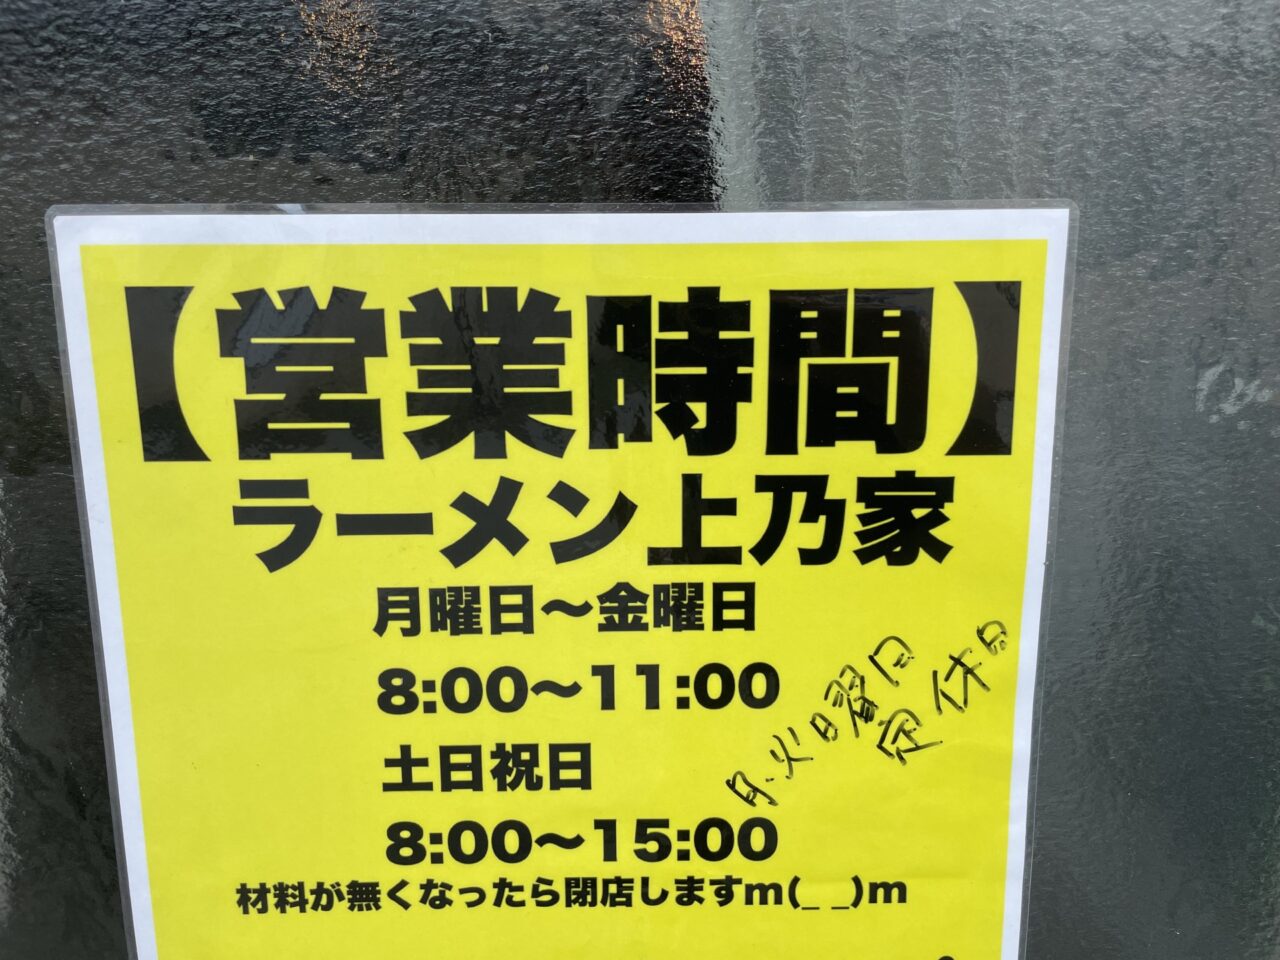 【営業時間】
ラーメン上乃家
月曜日〜金曜日
8:00〜11:00
土日祝日
8:00〜15:00
月、火曜日
定休日
材料が無くなったら閉店しますm(_ _)m